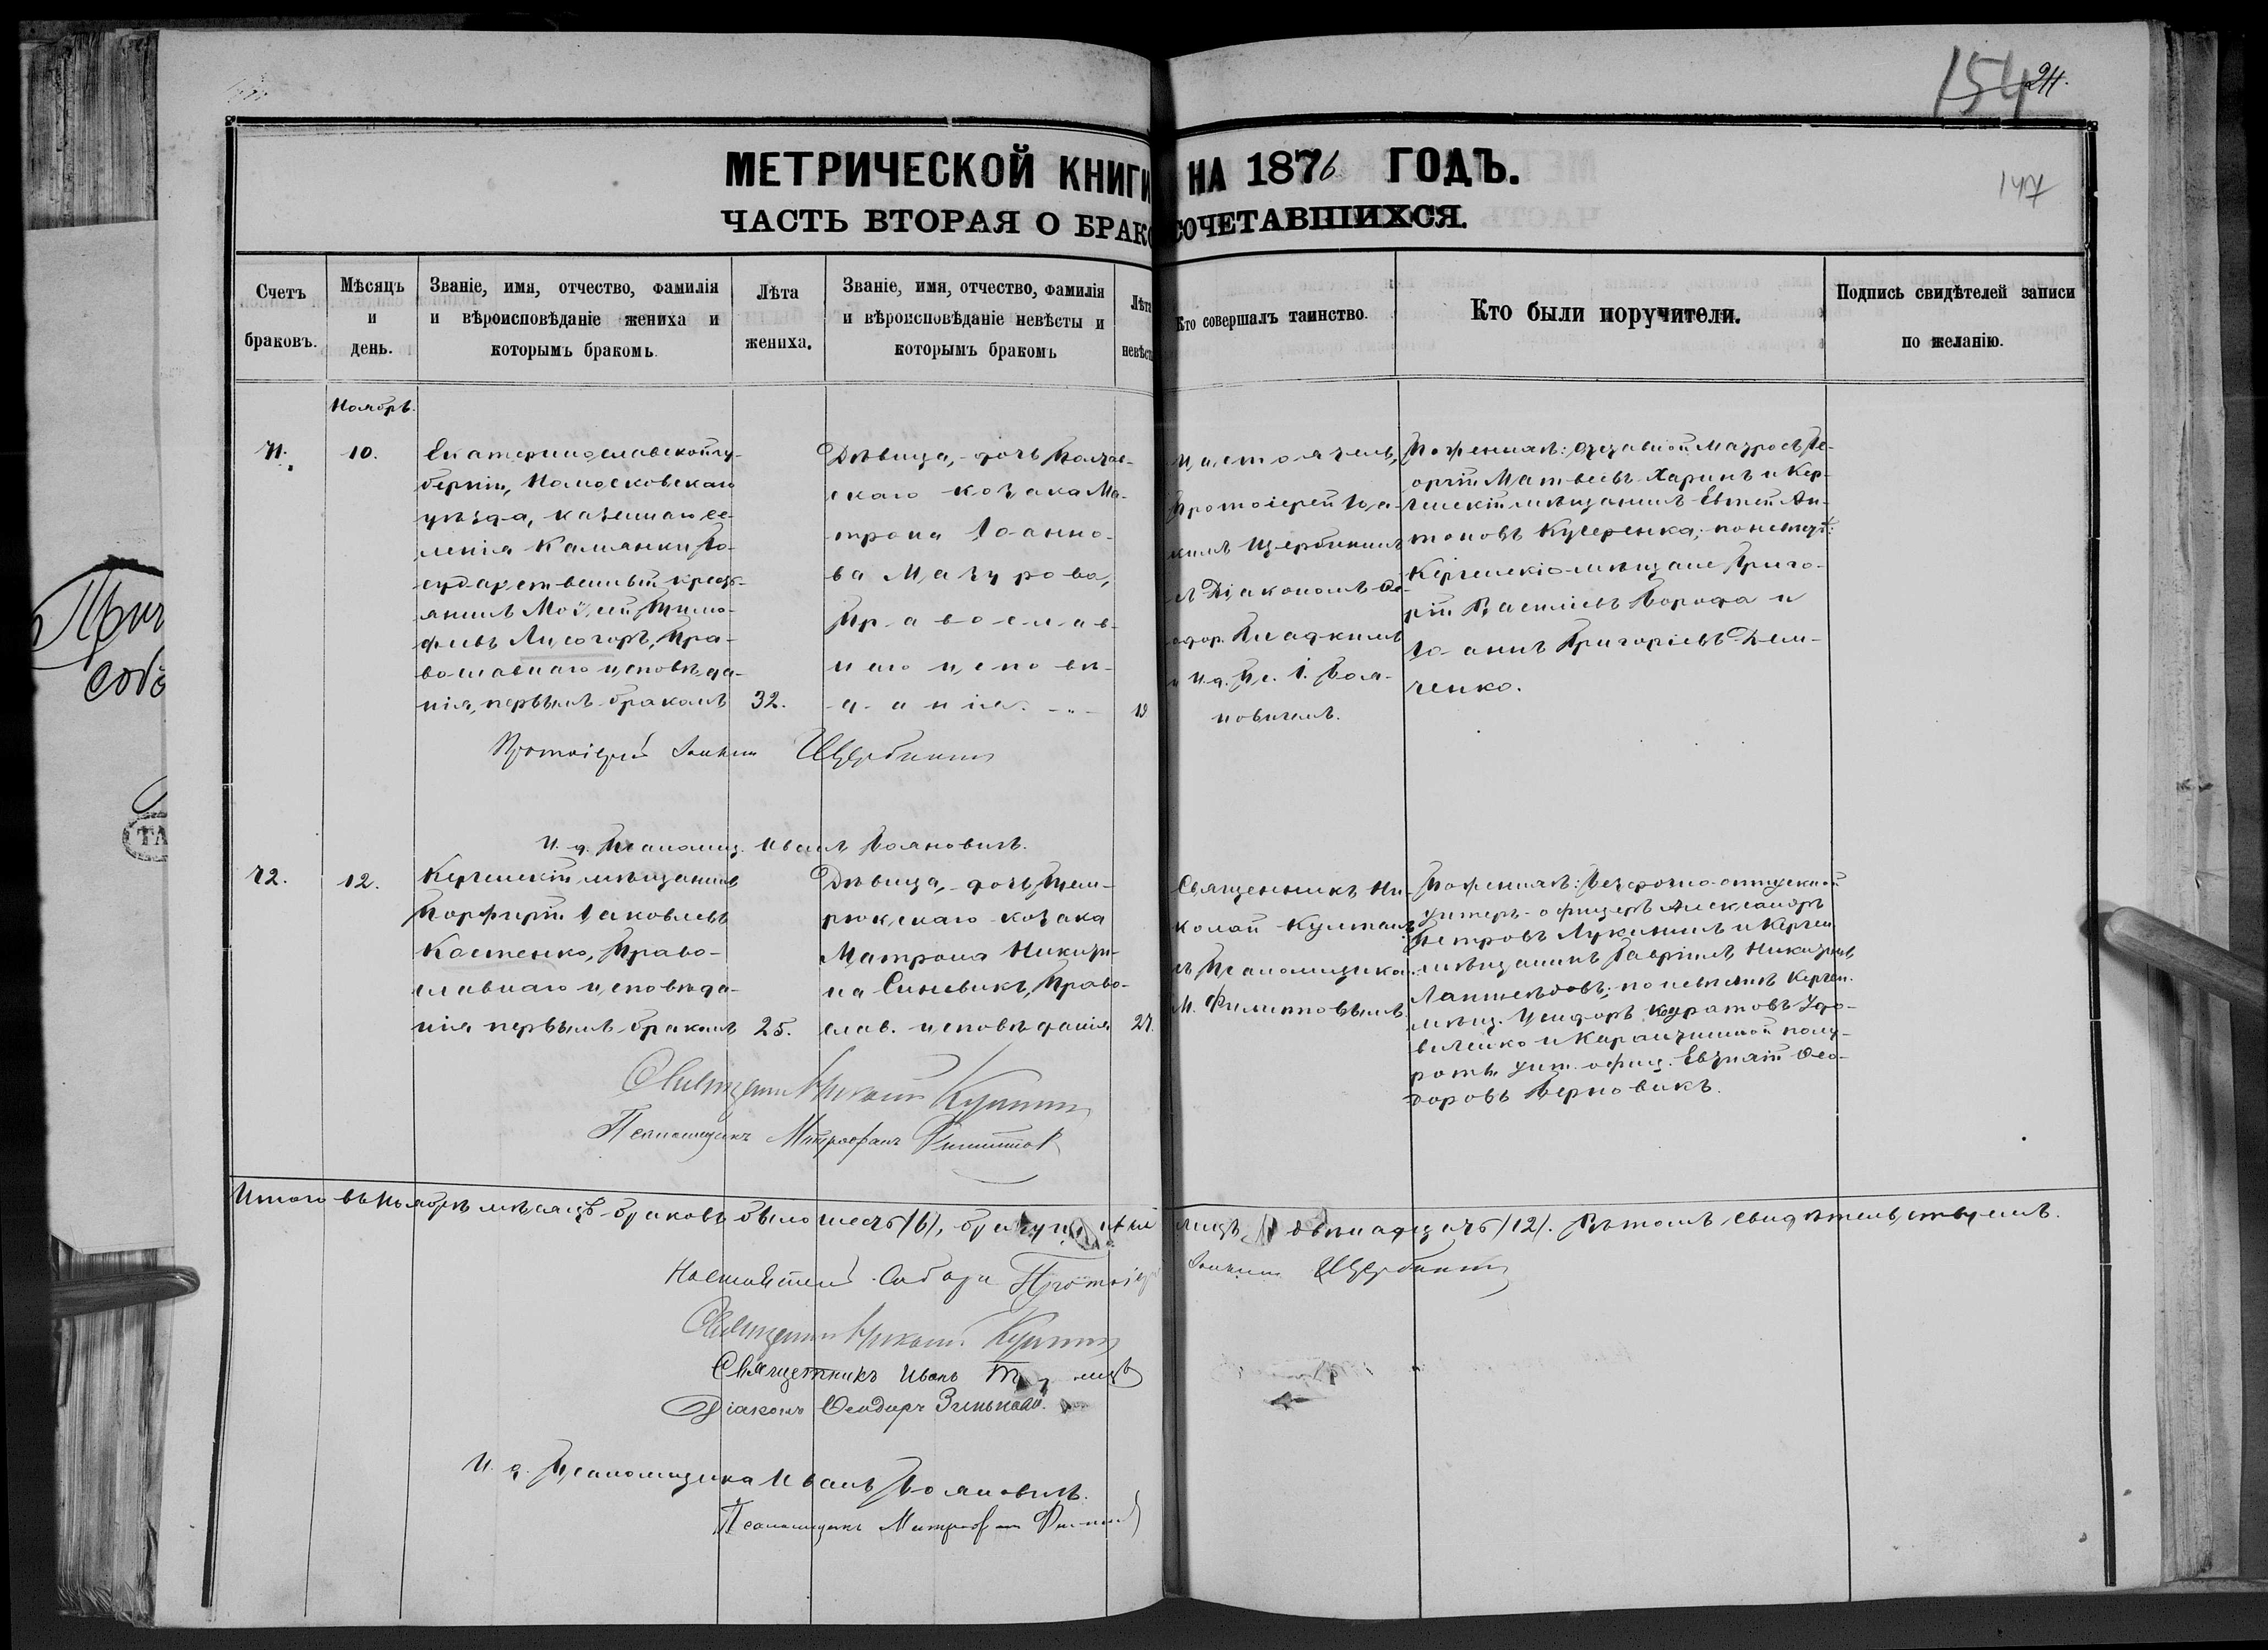 154 24.
МЕТРИЧЕСКОЙ КНИГИ НА 1876 ГОДЪ.
147
ЧАСТЬ ВТОРАЯ О БРАКОСОЧЕТАВШИХСЯ.
Счетъ браковъ.
Мѣсяцъ и день.
Званіе, имя, отчество, фамилія
и вѣроисповѣданіе жениха и
которымъ бракомъ.
Лѣта жениха.
Званіе, имя, отчество, фамилія
и вѣроисповѣданіе невѣсты и
которымъ бракомъ
Лѣта невѣс
Кто совершалъ таинство.
Кто были поручители.
Подпись свидѣтелей записи
по желанію.
Ноябрь.
71.
10.
Екатеринославской гу-
берніи, Новомосковскаго
уѣзда, казеннаго се-
ленія Камянки Го-
сударственный кресть-
янинъ Моѵсей Тимо-
феевъ Лисогоръ, Пра-
вославнаго исповѣда-
нія, первымъ бракомъ
32.
Дѣвица, дочь
скаго козака Ма-
трона Іоанно-
ва Мазурова,
Православ-
наго исповѣ-
данія. -„-
19
Настоятель,
Протоіерей Іоа-
кимъ Щербининъ
съ Діакономъ Ѳе-
одор.
и И.д. Пс. І. Воя-
новичемъ.
По женихѣ: отставной матросъ Ге-
оргій Матвеевъ Харинъ и Кер-
ченскій мѣщанинъ Евтей Ан-
тоновъ Кучеренка; по невѣстѣ:
Керченскіе мѣщане Григо-
рій Василіевъ Борода и
Іоаннъ Григоріевъ Дем-
ченко.
Протоіерей Іоакимъ Щербининъ
И. д. Псаломщ. Иванъ Вояновичъ.
72.
12.
Керченскій мѣщанинъ
Порфирій Іаковлевъ
Костенко, Право-
славнаго исповѣда-
нія первымъ бракомъ
25.
Дѣвица, дочь Тем-
рюкскаго козака
Матрона Никити-
на Синевикъ, Право-
слав. исповѣданія
27.
Священникъ Ни-
колай Култашъ
съ Псаломщиком.
М. Филипповымъ.
По женихѣ: Безсрочно-отпускной
унтеръ-офицеръ Александръ
Петровъ Лукининъ и Керчен.
мѣщанинъ Гавріилъ Никитинъ
по невѣстѣ Керчен.
мѣщ. Исидоръ Удо-
виченко и Карантинной полу-
роты унт. офиц. Евгеній Ѳео-
доровъ Верновикъ.
Священникъ Николай
Псаломщикъ Митрофанъ Филипповъ
Итого въ Ноябрѣ мѣсяцѣ браковъ было шесть /6/, лицъ двенадцать /12/. Въ томъ свидѣтельствуемъ.
Настоятель Собора Протоіер Іоакимъ Щербининъ
Священникъ Николай
Священникъ Иванъ
Діаконъ Ѳеодоръ Зиньковъ.
И. д. Псаломщика Иванъ Вояновичъ.
Псаломщикъ Митрофан